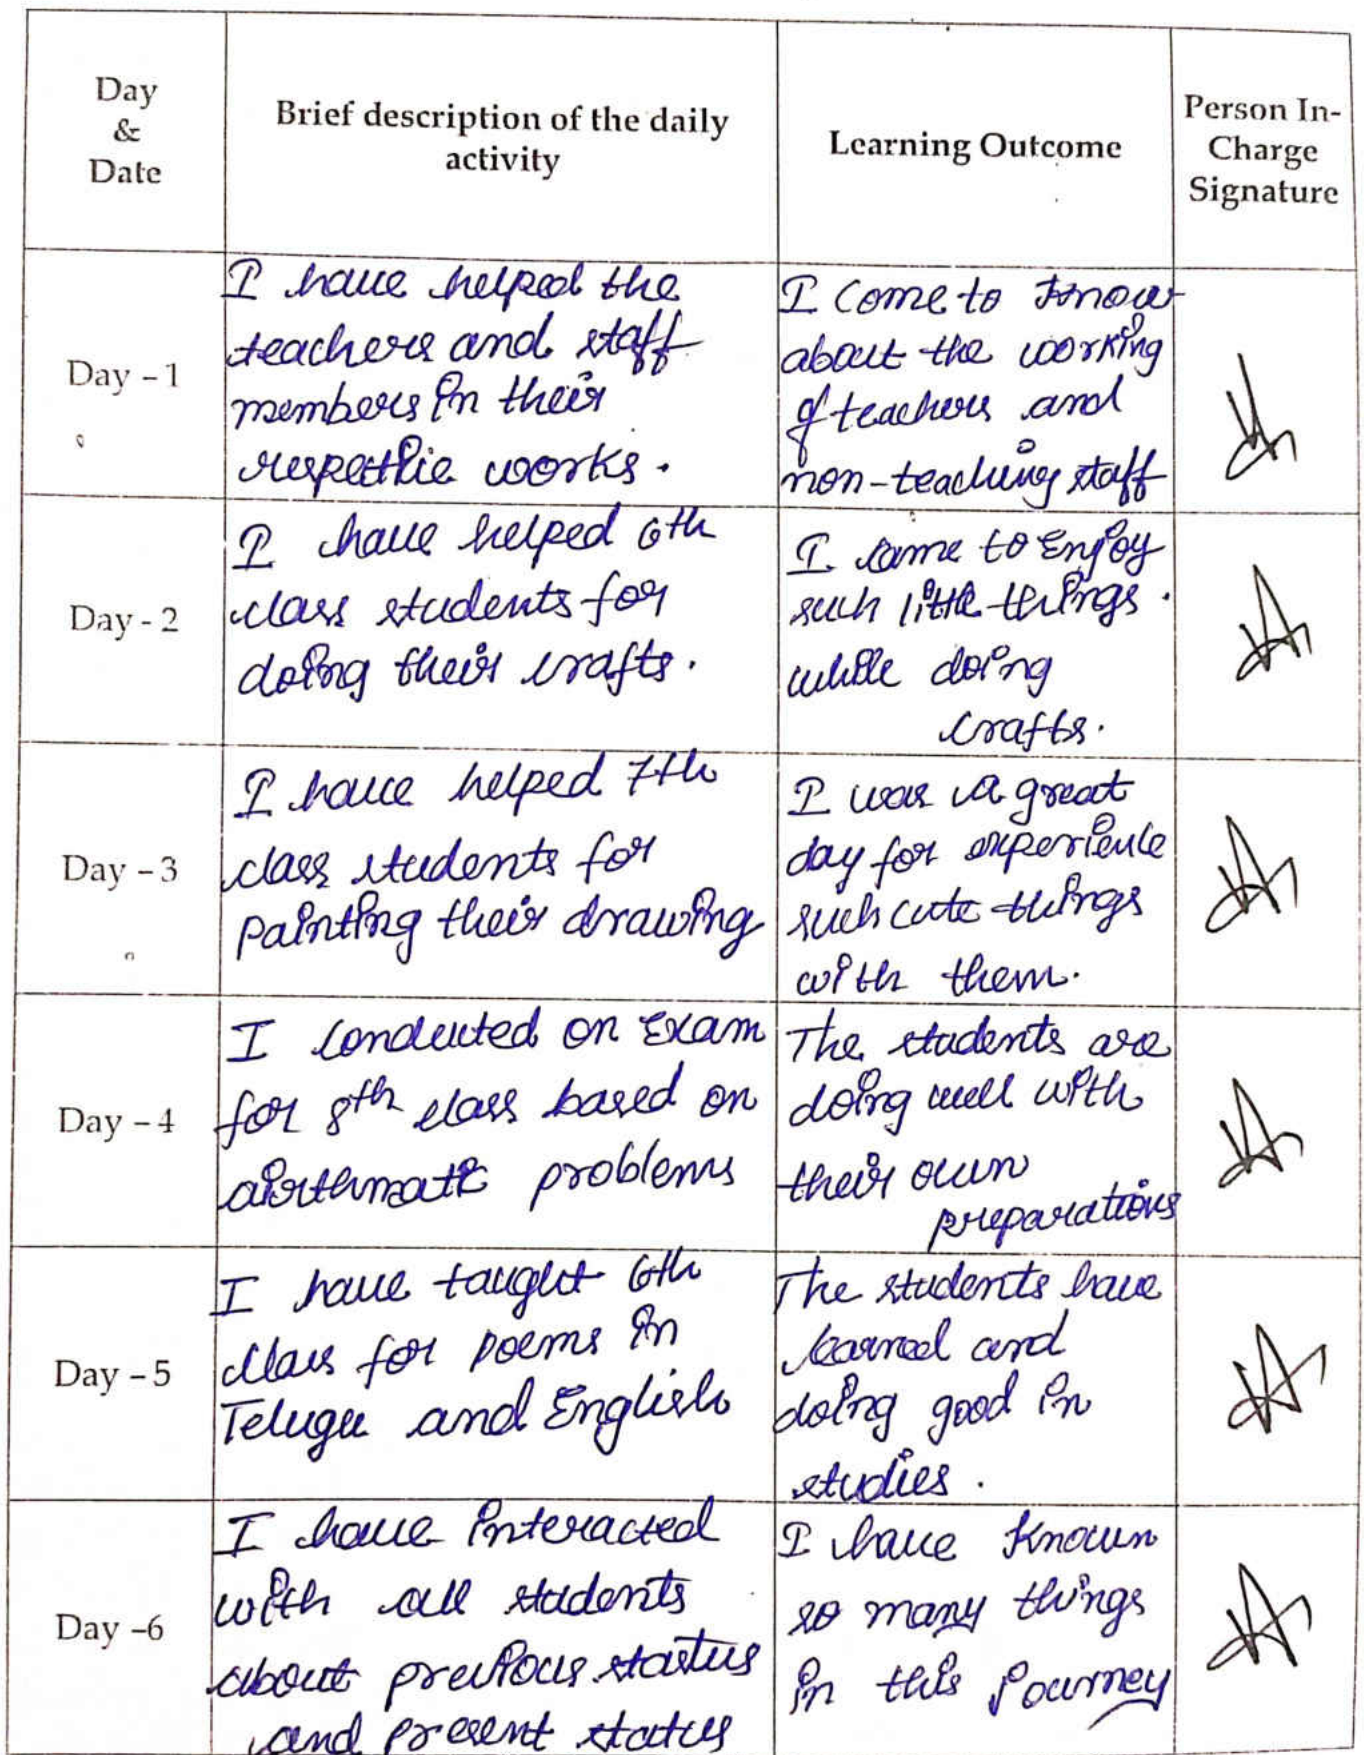 Day
&
Date
Brief description of the daily
activity
Learning Outcome
Person In-
Charge
Signature
Day - 1
I have helped the
teachers and staff
members in their
respecthie works.
I come to know
about the working
of teachers and
non-teaching staff
Day - 2
I have helped 6th
class students for
doing their crafts.
I came to Enjoy
such little things.
while doing
crafts.
Day - 3
I have helped 7th
class students for
painting their drawing
I was a great
day for experience
such cute things
with them.
Day - 4
I conducted on Exam
for 8th class based on
airthmatic problems
The students are
doing well with
their own
preparations
Day - 5
I have taught 6th
class for poems in
Telugu and English
The students have
learned and
doing good in
studies.
Day -6
I have interacted
with all students
about previous startus
and present status
I have known
so many things
in this journey